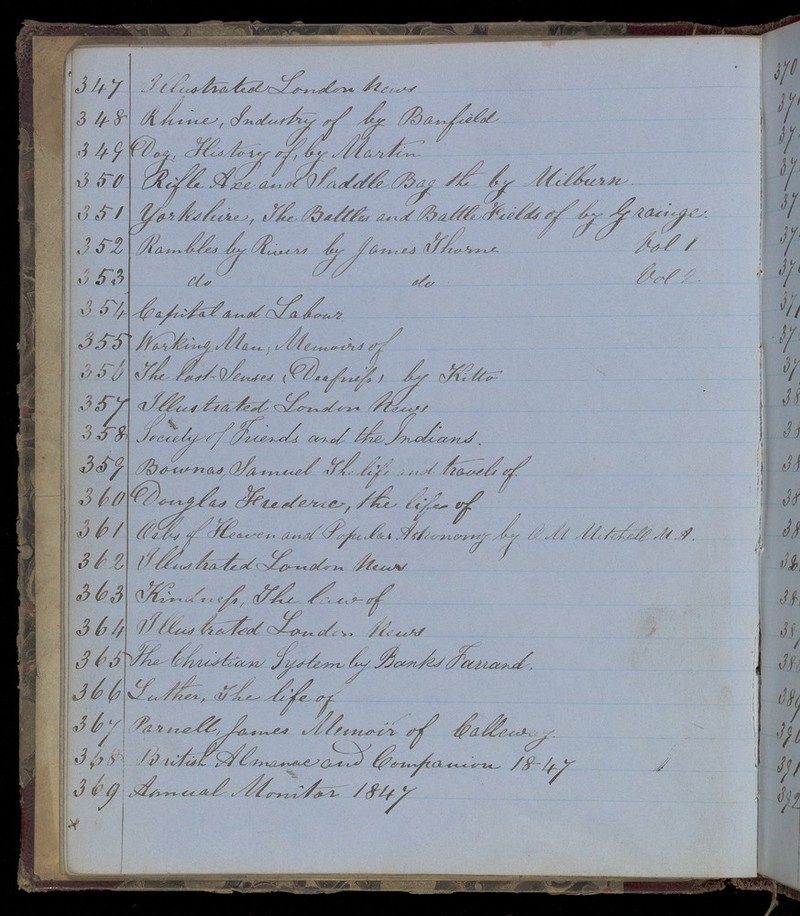 347 Illustrated London News
348 Rhine, Industry of by Banfield
349 Dog, History of, by Martin
350 Rifle Axe and Saddle Bag the by Milburn
351 Yorkshire, The Battles and Battle Fields of by Grainge.
352 Rambles by Rivers by James Thorne Vol 1
353 do do Vol 2.
354 Capital and Labour
355 Working Man, Memoirs of
356 The lost Senses, Deafness, by Kitto
357 Illustrated London News
358 Society of Friends and the Indians.
359 Bownas, Samuel The life and travels of
360 Douglas Frederic, the life of
361 Orbs of Heaven and Popular Astronomy by O M Mitchell M A.
362 Illustrated London News
363 Kindness, The law of
364 Illustrated London News
365 The Christian System by Banks Farrand.
366 Luther, The life of
367 Parnell, James Memoir of Calleway.
368 British Almanac and Companion 1847
369 Annual Monitor 1847
x
370